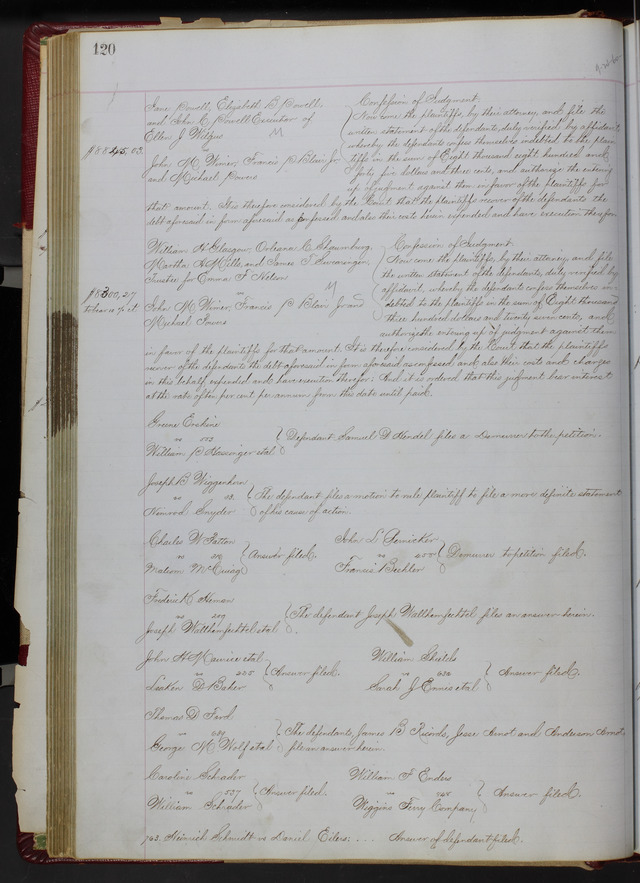 120
Jane Powell, Elizabeth B Powell,
and John C Powell Executor of
Ellen J Wilgus
vs M
John M Wimer, Francis P Blair Jr
and Michael Powers
$8845.03.
Confession of Judgment
Now come the plaintiffs, by their attorney, and file the
written statement of the defendants, duly verified by affidavit,
whereby the defendants confess themselves indebted to the plain-
tiffs in the sum of Eight thousand eight hundred and
forty five dollars and three cents, and authorize the entering
up of judgment against them in favor of the plaintiffs for
that amount. It is therefore considered by the Court that the plaintiffs recover of the defendants the
debt aforesaid in form aforesaid as confessed and also their costs herein expended and have execution therefor
William H Glasgow, Orleana C. Schaumburg,
Martha A Mills, and James T Swearingen,
Trustee for Emma F Nelson
vs M
John M Wimer, Francis P Blair Jr and
Michael Powers
$8300,27
to bear 10 p. ct.
Confession of Judgment
Now come the plaintiffs by their attorney, and file
the written statement of the defendants, duly verified by
affidavit, whereby the defendants confess themselves in-
debted to the plaintiffs in the sum of Eight thousand
three hundred dollars and twenty seven cents, and
authorize the entering up of judgment against them
in favor of the plaintiffs for that amount. It is therefore considered by the Court that the plaintiffs
recover of the defendants the debt aforesaid in form aforesaid as confessed and also their costs and charges
in this behalf expended and have execution therefor. And it is ordered that this judgment bear interest
at the rate of ten per cent per annum from this date until paid.
Greene Erskine
vs 152
William P Hassinger et al
Defendant Samuel D Hendel files a Demurrer to the petition.
Joseph B Wiggenhorn
vs
Nimrod Snyder
The defendant files a motion to rule plaintiff to file a more definite statement
of his cause of action.
Charles W Patton
vs
Matson McQuay
Answer filed.
John L
vs 455
Francis Bechler
Demurrer to petition filed.
Frederick Heman
vs
Joseph Walthemfechtel et al
The defendant Joseph Walthemfechtel files an answer herein.
John H Maurice et al
vs
D Baker
Answer filed.
William Shields
vs 632
Sarah J Ennis et al
Answer filed.
Thomas D Ford
vs
George M Wolf et al
The defendants, James B Rucinds, Jesse Arnot and Anderson Arnot
file an answer herein.
Caroline Schrader
vs 527
William Schrader
Answer filed.
William F Enders
vs
Wiggins Ferry Company
Answer filed.
763. Heinrich Schmidt vs Daniel Eilers: . . . Answer of defendant filed.